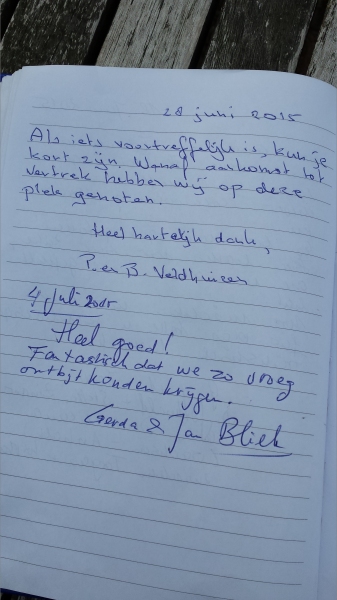 28 juni 2015
Als iets voortreffelijk is, kun je
kort zijn. Vanaf aankomst tot
vertrek hebben wij op deze
plek genoten.
Heel hartelijk dank,
P. en B. Veldhuizen
4 juli 2015
Heel goed!
Fantastisch dat we zo vroeg
ontbijt konden krijgen.
Gerda & Jan Bliek